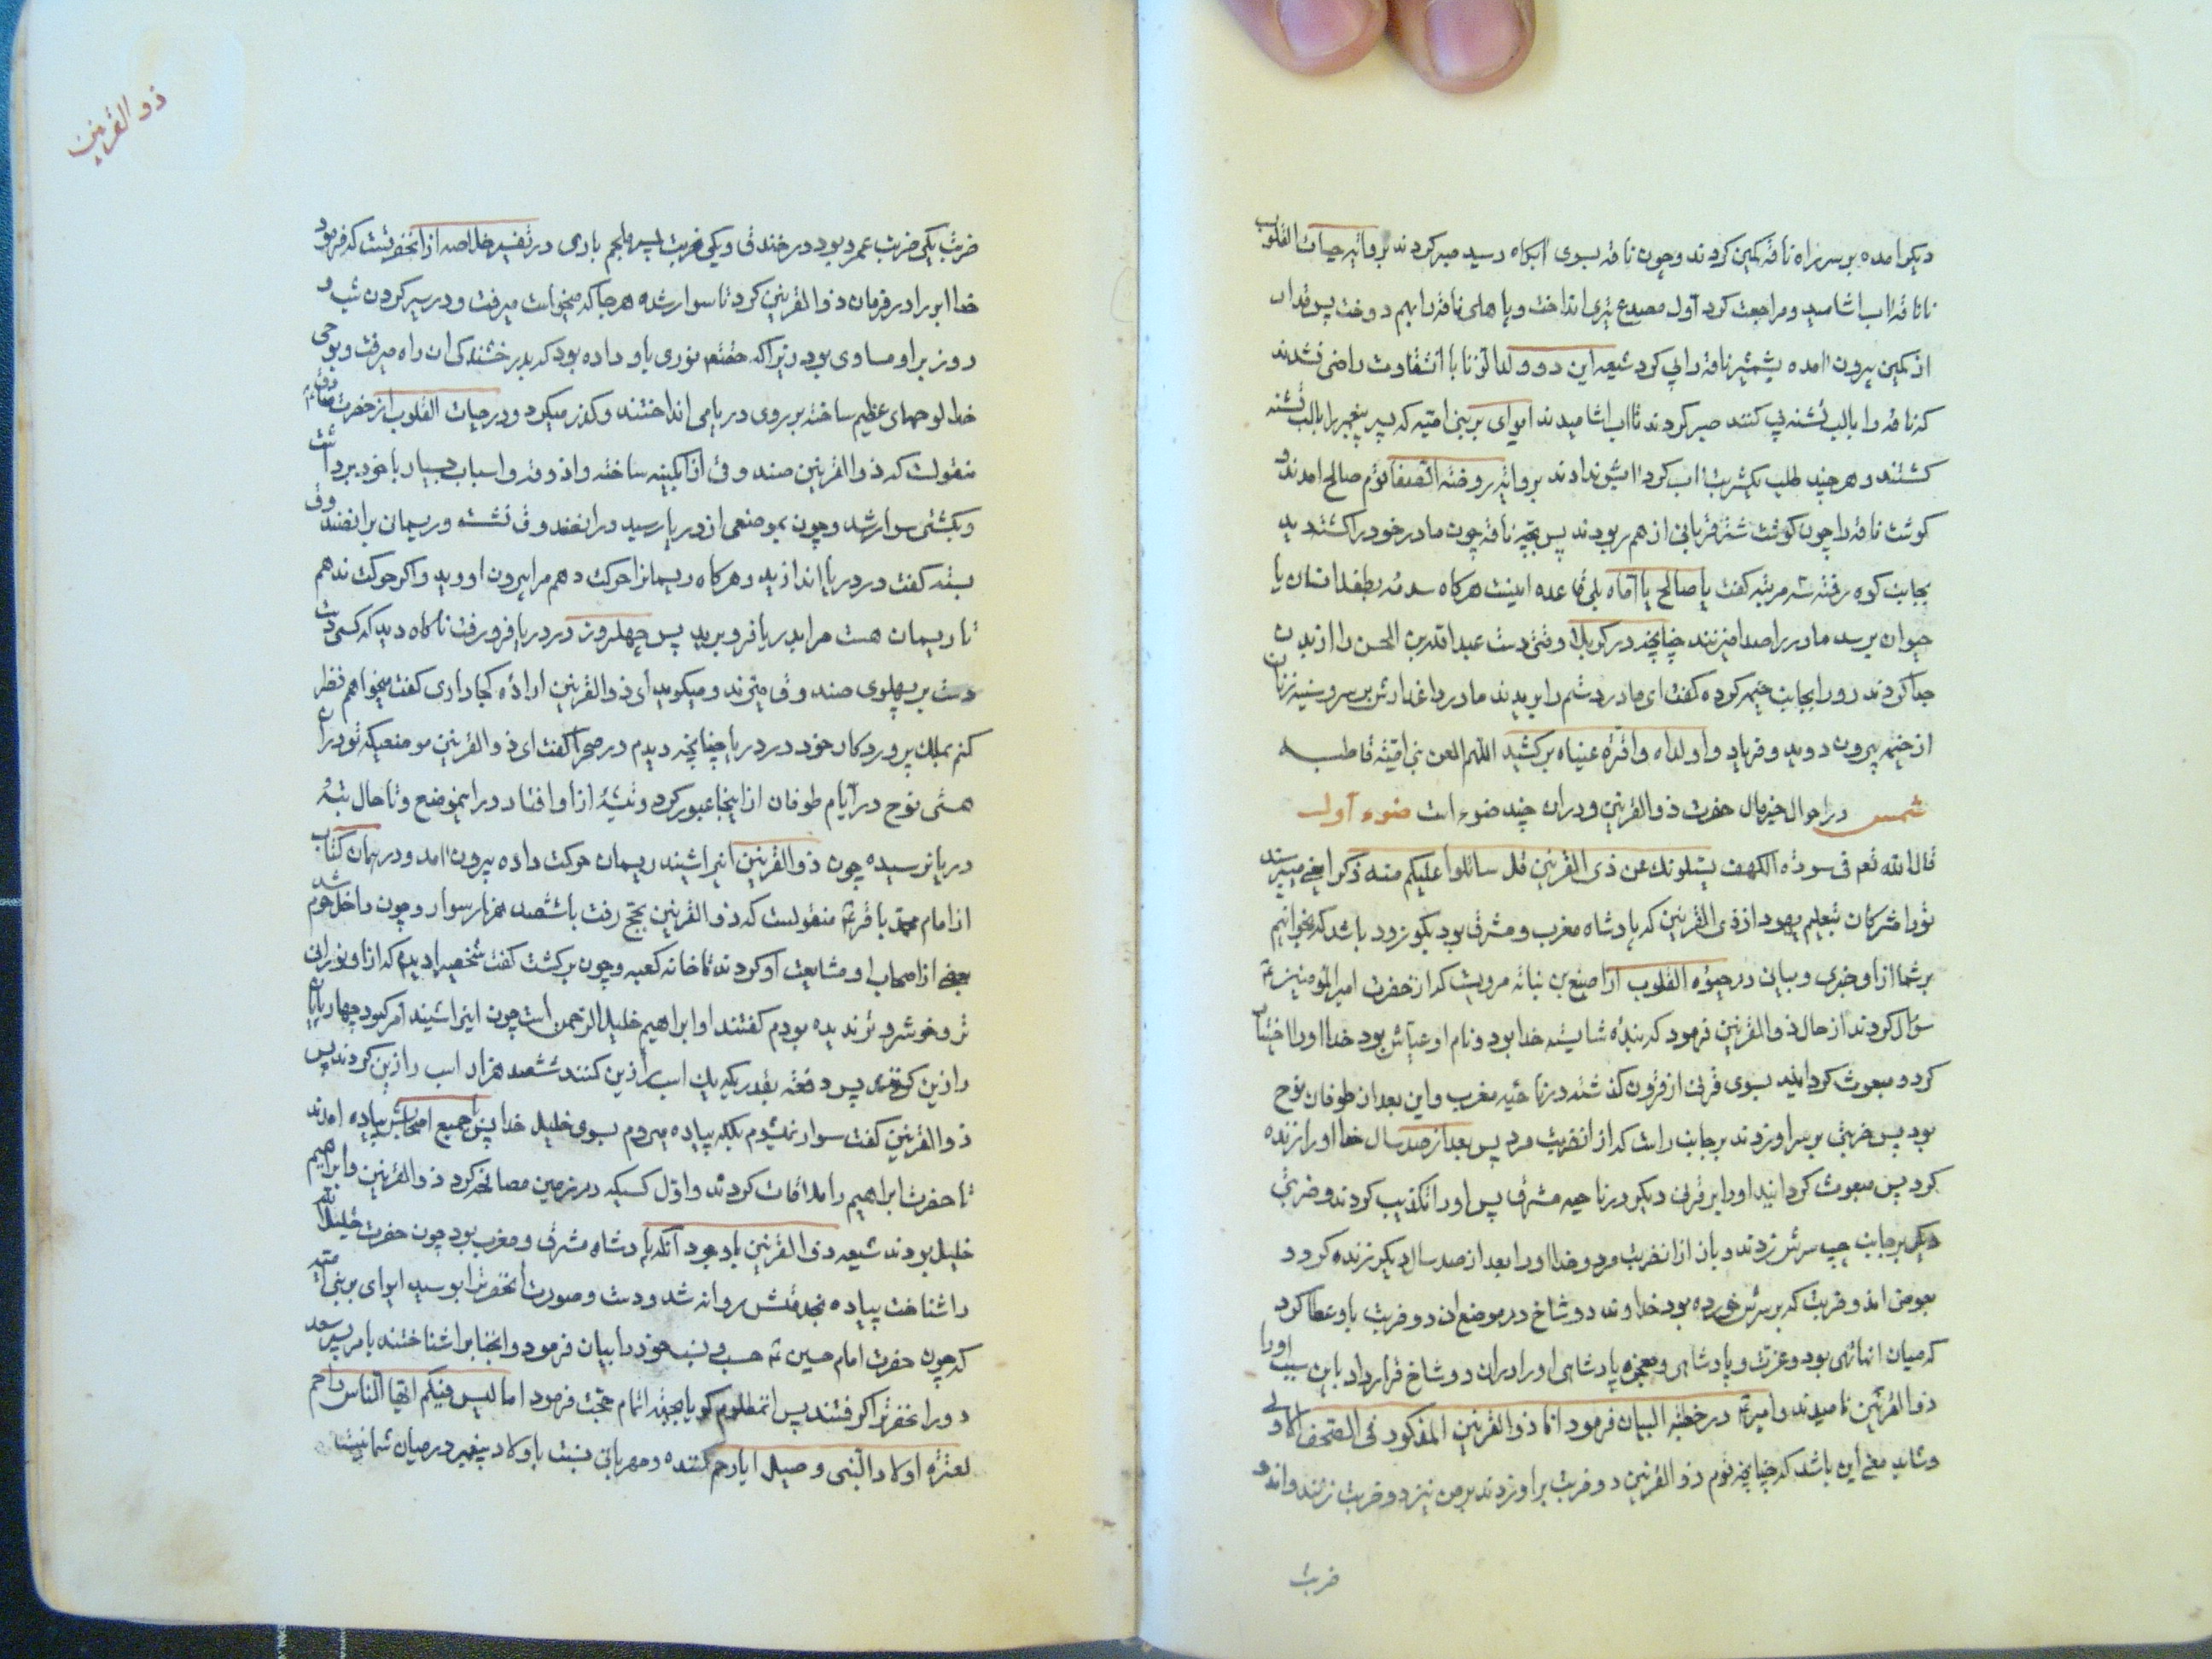 دیگر آمده بر سر راه ناقه کمین کردند و چون ناقه بسوی آبگاه رسید صبر کردند بروایة حیات القلوب
تا ناقه آب اشامید و مراجعت کرد آول مصدع تیری انداخت و پا های ناقه را بهم دوخت پس قدار
از کمین بیرون آمده بشمشیر ناقه را پی کرد شیعه این دو ولد الزنا با آنشقاوت راضی نشدند
که ناقه را با لب تشنه پی کنند صبر کردند تا آب اشامیدند ای وای بر بنی امیه که پسر پیغمبر را با لب تشنه
کشتند و هر چند طلب یکشربت آب کرد ندادند بروایة روضة الصفا قوم صالح آمدند و
کوشت ناقه را چون کوشت شتر قربانی از هم ربودند پس بچه ناقه چون مادر خود را کشته دید
بجانب کوه رفته سه مرتبه کفت یا صالح یا اماه بلی قاعده اینست هرکاه صدمه بطفل انسان یا
حیوان برسد مادر را صدا میزند چنانچه در کربلا وقتی دست عبدالله بن الحسن را از بدن
جدا کردند رو را بجانب خیمه کرده کفت ای مادر دستم را بریدند مادر داغدارش بر سر و سینه زنان
از خیمه بیرون دوید و فریاد وا ولداه وا قرة عیناه برکشید اللهم العن بنی امیة قاطبه
شمس در احوال خیر مآل حضرت ذوالقرنین و دران چند ضوء است ضوء آول
قال الله تعم فی سورة الکهف یسئلونک عن ذی القرنین قل ساتلوا علیکم منه ذکرا یعنی میپرسند
تورا مشرکان بتعلیم یهود از ذی القرنین که پادشاه مغرب و مشرق بود بکو زود باشد که بخوانیم
بر شما از او خبری و بیان در حیوة القلوب از اصبغ بن نباته مرویست که از حضرت امیر المؤمنین ع
سؤال کردند از حال ذوالقرنین فرمود که بندۀ شایسته خدا بود و نام او عیاش بود خدا اورا اختیار
کرد و مبعوث کردانید بسوی قرنی از قرون کذشته در ناحیه مغرب و این بعد از طوفان نوح
بود پس ضربتی بر سر او زدند بر جانب راست که از انضربت مرد پس بعد از صد سال خدا اورا زنده
کرد پس مبعوث کردانید اورا بر قرنی دیکر در ناحیه مشرق پس اورا تکذیب کردند و ضربتی
دیکر بر جانب چپ سرش زدند و باز از انضربت مرد و خدا اورا بعد از صد سال دیکر زنده کرد و
بعوض اندو ضربت که بر سرش خورده بود خداوند دو شاخ در موضع ان دو ضربت باو عطا کرد
که میان انها تهی بود و عزت و پادشاهی و معجزه پادشاهی اورا دران دو شاخ قرار داد باین سبب اورا
ذوالقرنین نامیدند و امیر ع در خطبة البیان فرمود انا ذوالقرنین المذکور فی الصحف الاولی
و شاید معنی این باشد که چنانچه قوم ذوالقرنین دو ضربت بر او زدند بر من نیز دو ضربت زنند و اندو
ضربت
ذو القرنین
ضربت یکی ضربت عمرو بود در خندق و یکی ضربت پسر ملجم باری در تفسیر خلاصه از انحضرتست که فرمود
خدا ابر را در فرمان ذوالقرنین کرد تا سوار شده هر جا که میخواست میرفت و در سیر کردن شب و
روز بر او مساوی بود زیرا که حقتعم نوری باو داده بود که بدرخشندکی ان راه میرفت و بوحی
خدا لوحهای عظیم ساخته بر روی دریا می انداختند و کذر میکرد و در حیات القلوب از حضرت صادق ع
منقولست که ذوالقرنین صندوقی از آبکینه ساخته و اذوقه و اسباب بسیار با خود برداشت
و بکشتی سوار شد و چون بموضعی از دریا رسید در انصندوق نشسته و ریسمان بر انصندوق
بسته کفت در دریا اندازید و هرکاه ریسمانرا حرکت دهم مرا بیرون اورید و اکر حرکت ندهم
تا ریسمان هست مرا بدریا فرو برید پس چهل روز در دریا فرو رفت ناکاه دید که کسی دست
دست بر پهلوی صندوق میزند و میکوید ای ذوالقرنین ارادۀ کجا داری کفت میخواهم نظر
کنم بملک پروردکار خود در دریا چنانچه دیدم در صحرا کفت ای ذوالقرنین موضعیکه تو درانی
نوح در ایام طوفان از اینجا عبور کرد و تیشۀ از او افتاد در اینموضع و تا حال بته
دریا نرسیده چون ذوالقرنین انرا شنید ریسمان حرکت داده بیرون آمد و در همان کتاب
از امام محمد باقر ع منقولست که ذوالقرنین بحج رفت با ششصد هزار سوار و چون داخل حرم شد
بعضی از اصحاب او مشایعت او کردند تا خانه کعبه و چون برکشت کفت شخصیرا دیدم که از او نورانی
تر و خوشرو تر ندیده بودم کفتند او ابراهیم خلیل الرحمن است چون اینرا شنید امر کرد چهار پایان
را زین کردند پس دفعه بقدریکه یک اسب را زین کنند ششصد هزار اسب را زین کردند پس
ذوالقرنین کفت سوار نمیشوم بلکه پیاده میروم بسوی خلیل خدا پس با جمیع اصحابش پیاده امدند
تا حضرت ابراهیم را ملاقات کردند و اول کسیکه در زمین مصافحه کرد ذوالقرنین و ابراهیم
خلیل بودند شیعه ذوالقرنین باوجود آنکه پادشاه مشرق و مغرب بود چون حضرت خلیل الله
را شناخت پیاده بخدمتش روانه شد و دست و صورت انحضرترا بوسید ای وای بر بنی امیه
که چون حضرت امام حسین ع حسب و نسب خود را بیان فرمود و انجنابرا شناختند بامر پسر سعد
دور انحضرترا کرفتند پس انمظلوم بجهة اتمام حجت فرمود اما لیس فیکم ایها الناس راحم
لعترة اولاد النبی و صیل ایا رحم کننده و مهربانی نسبت باولاد پیغمبر در میان شما نیست